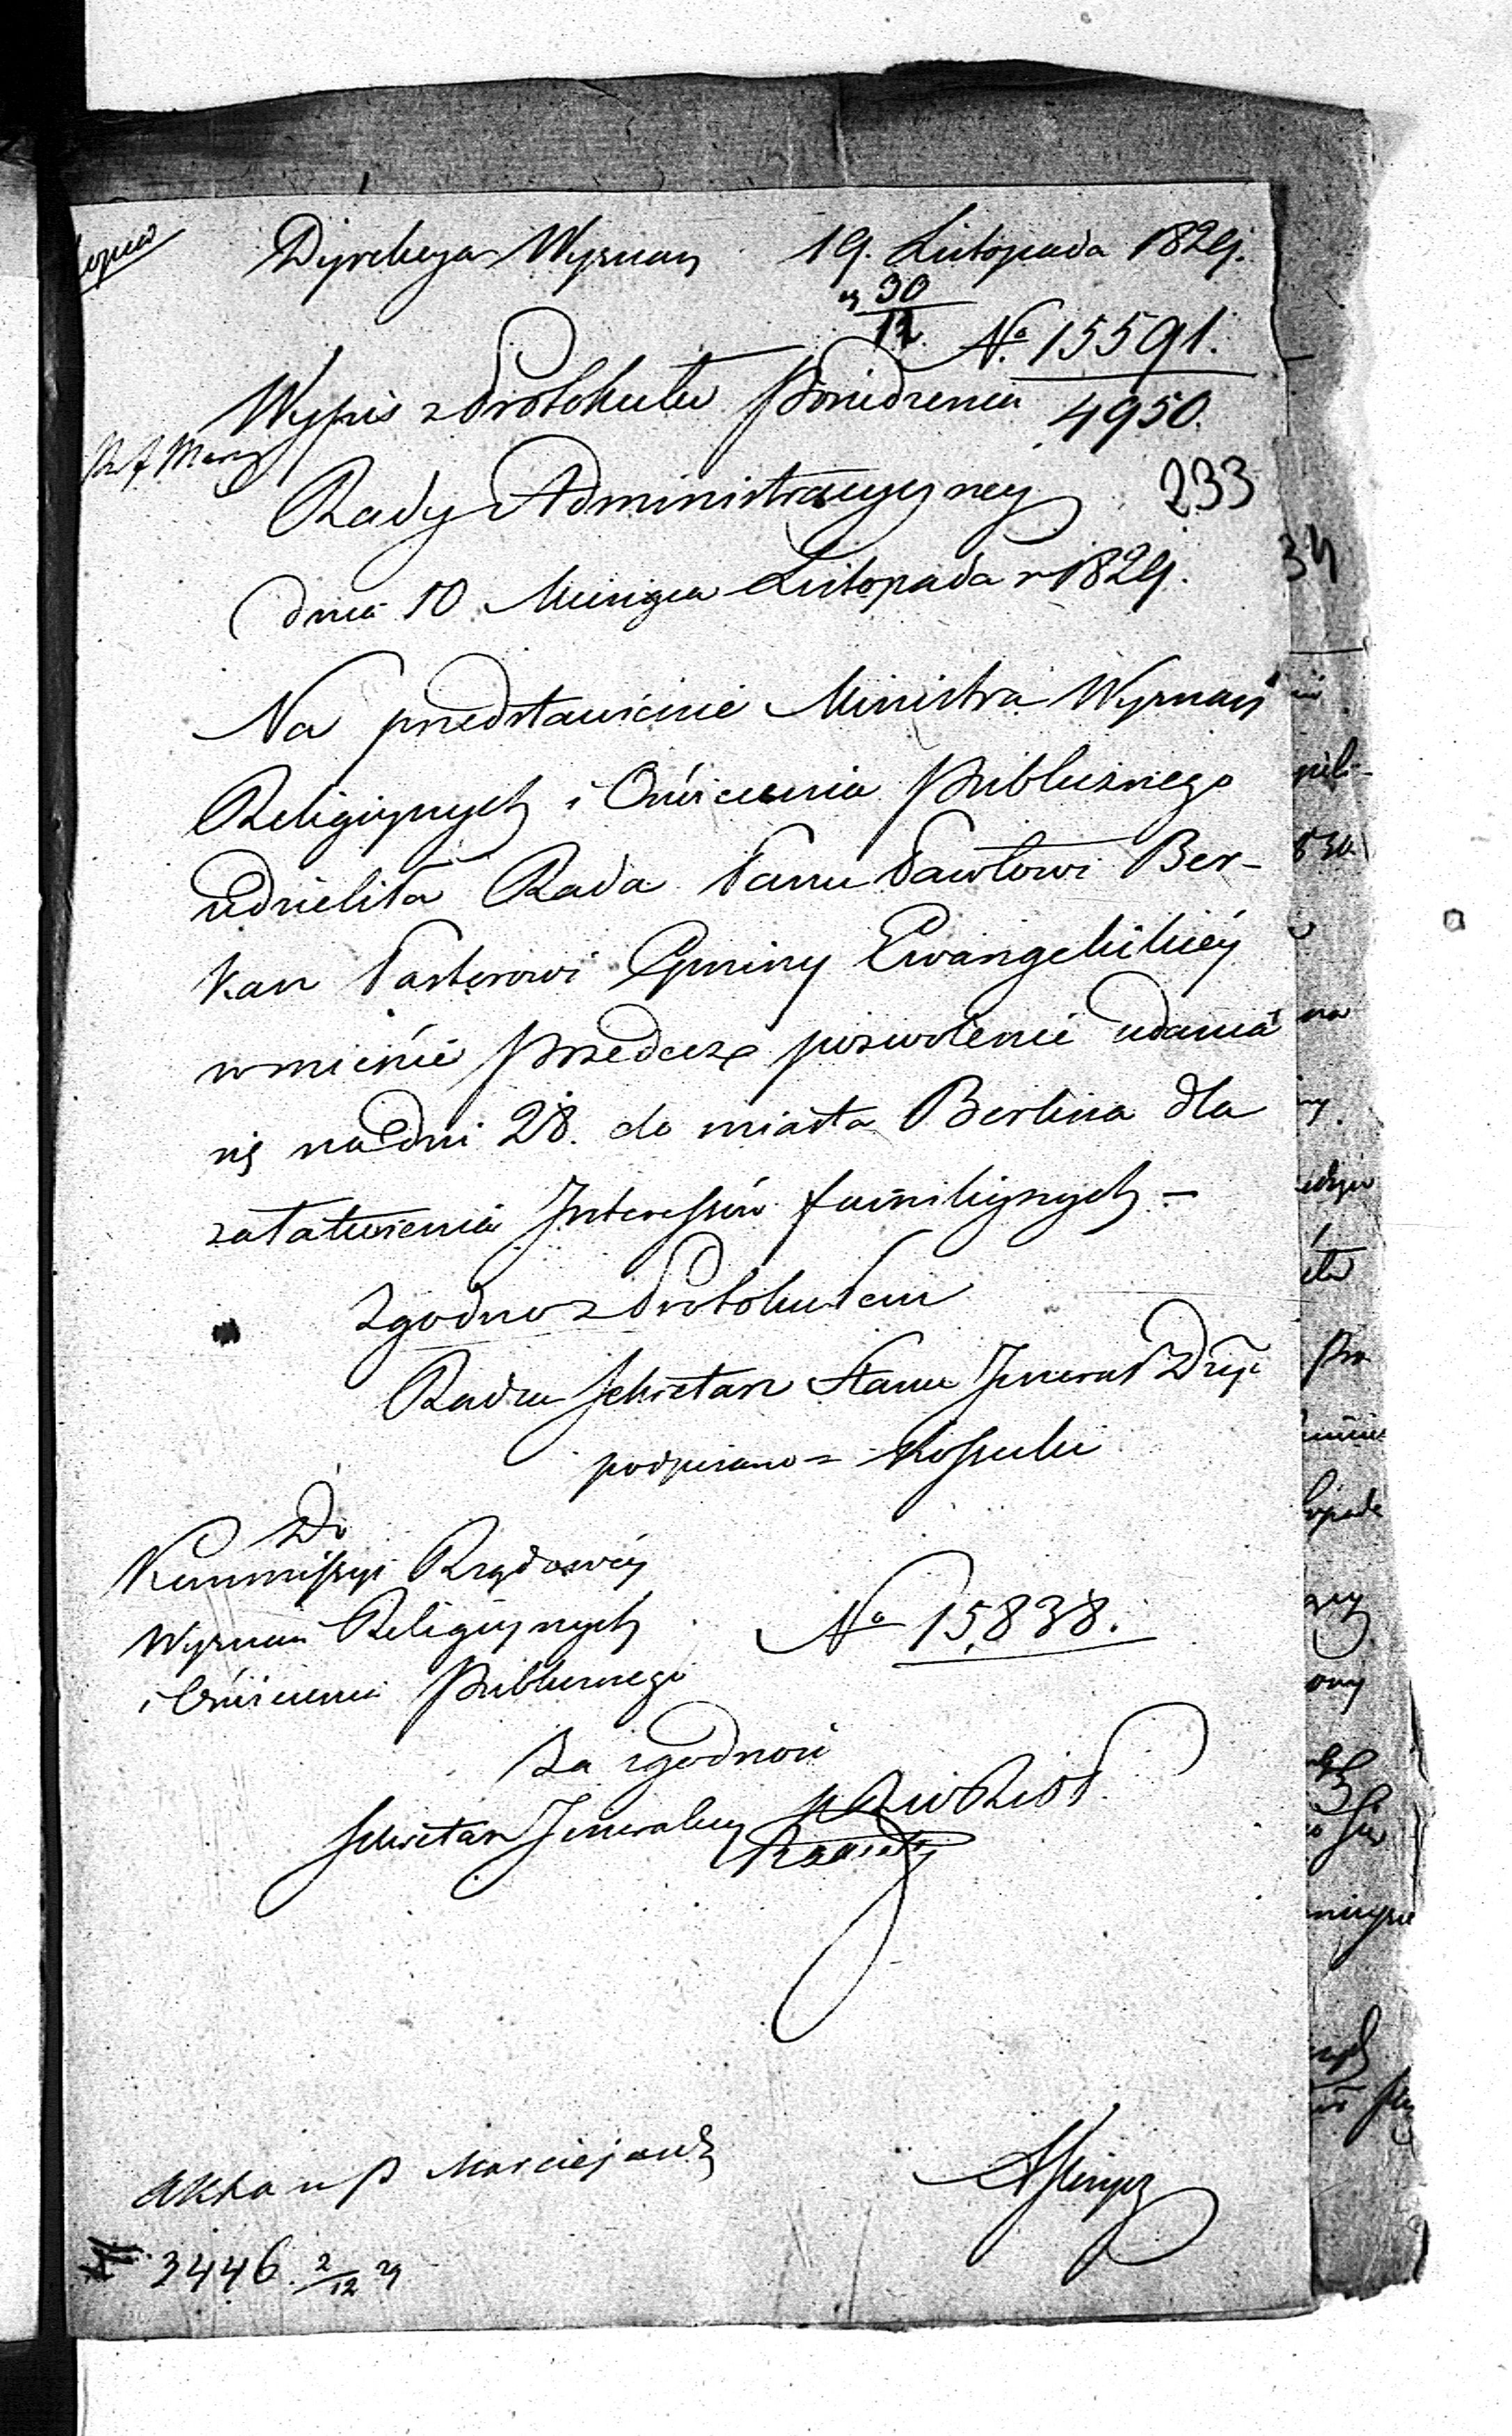 Dyrekcya Wyznań 19. Listopada 1829.
30/12
No. 15591.
Wypis z Protokułu Posiedzenia
4950.
Rady Administracyyney
233
dnia 10 Miesiąca Listopada r 1829.
Na przedstawienie Ministra Wyznań
Religiynych i Oświecenia Publicznego
udzieliła Rada Panu Pawłowi Ber-
kan Pastorowi Gminy Ewangelickiéy
w mieście Przedecz pozwolenie udania
się na dni 28. do miasta Berlina dla
załatwienia Interessów familiynych –
Zgodno z Protokułem
Radca Sekretarz Stanu Jenerał Dyw
podpisano = Kossecki
Do
Kommissyi Rządowéy
Wyznań Religiynych
i Oświecenia Publicznego
No 15,838.
Za zgodność
Sekretarz Jeneralny
Akta u P Maciejows
3446. 2/12 29